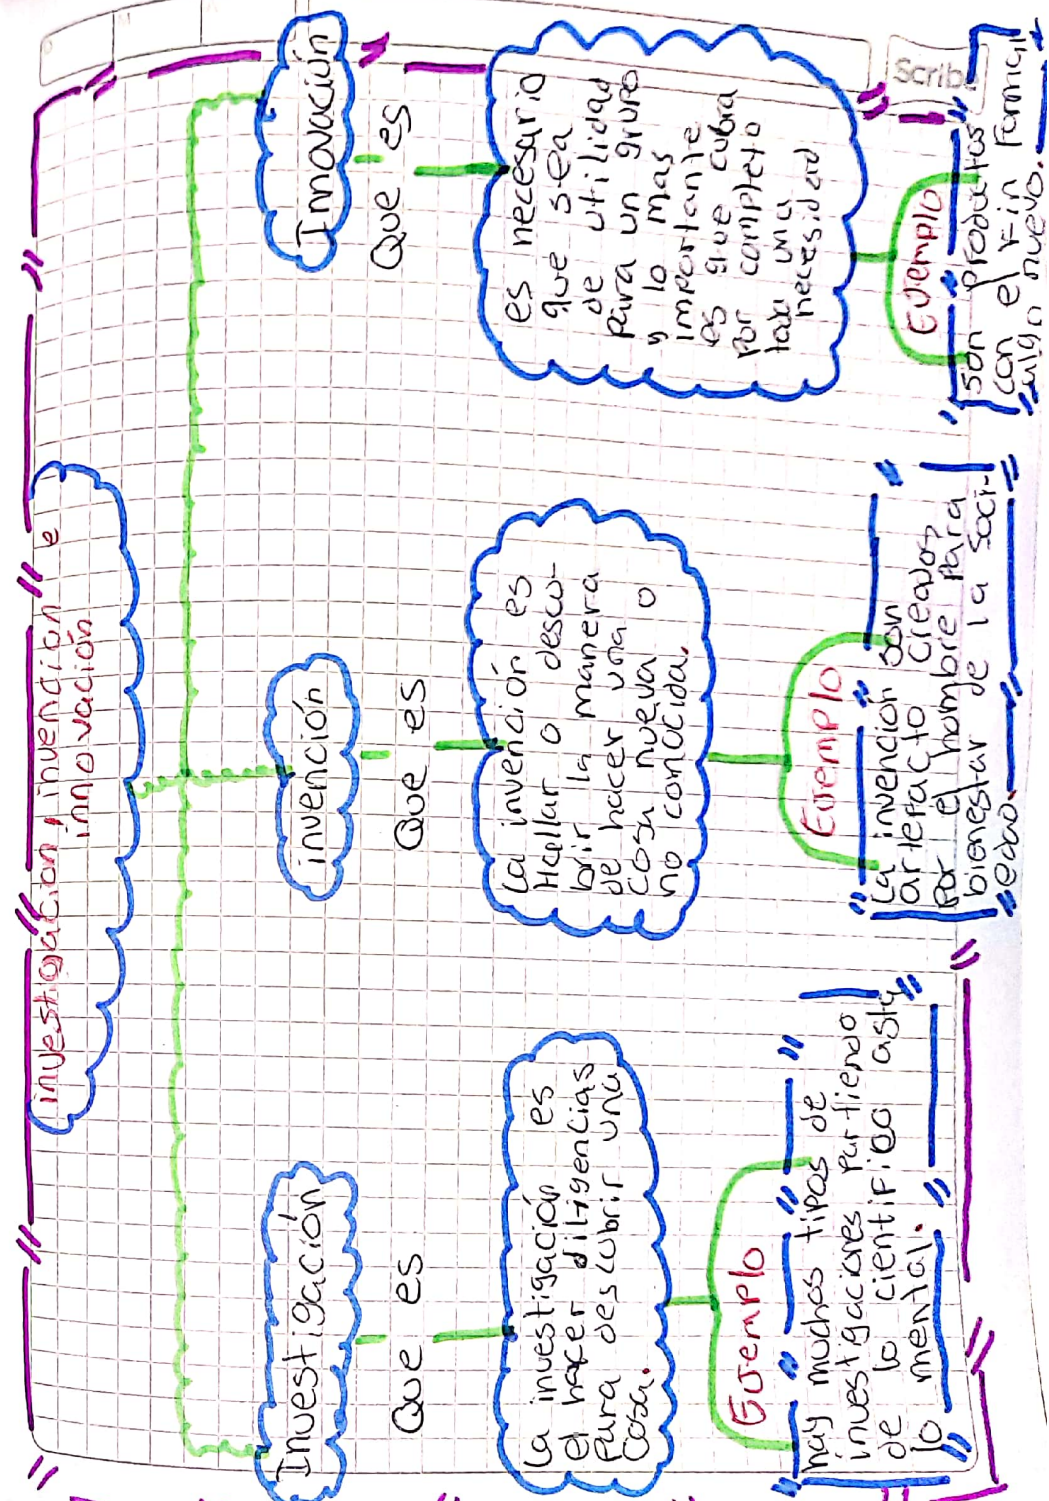 investigación, invención e
innovación
Investigación
Que es
La investigación es
el hacer diligencias
Para descubrir una
cosa.
Ejemplo
hay muchos tipos de
investigaciones Partiendo
de lo cientifico asta
lo mental.
invención
Que es
La invención es
Hallar o descu-
brir la manera
de hacer una
cosa nueva o
no conocida.
Ejemplo
La invención son
artefacto creados
Por el hombre Para
bienestar de la soci-
edad.
Innovación
Que es
es necesario
que sea
de utilidad
Para un grupo
y lo mas
importante
es que cubra
Por completo
toda una
necesidad
Ejemplo
son productos
con el Fin Formar
algo nuevo.
Scribe